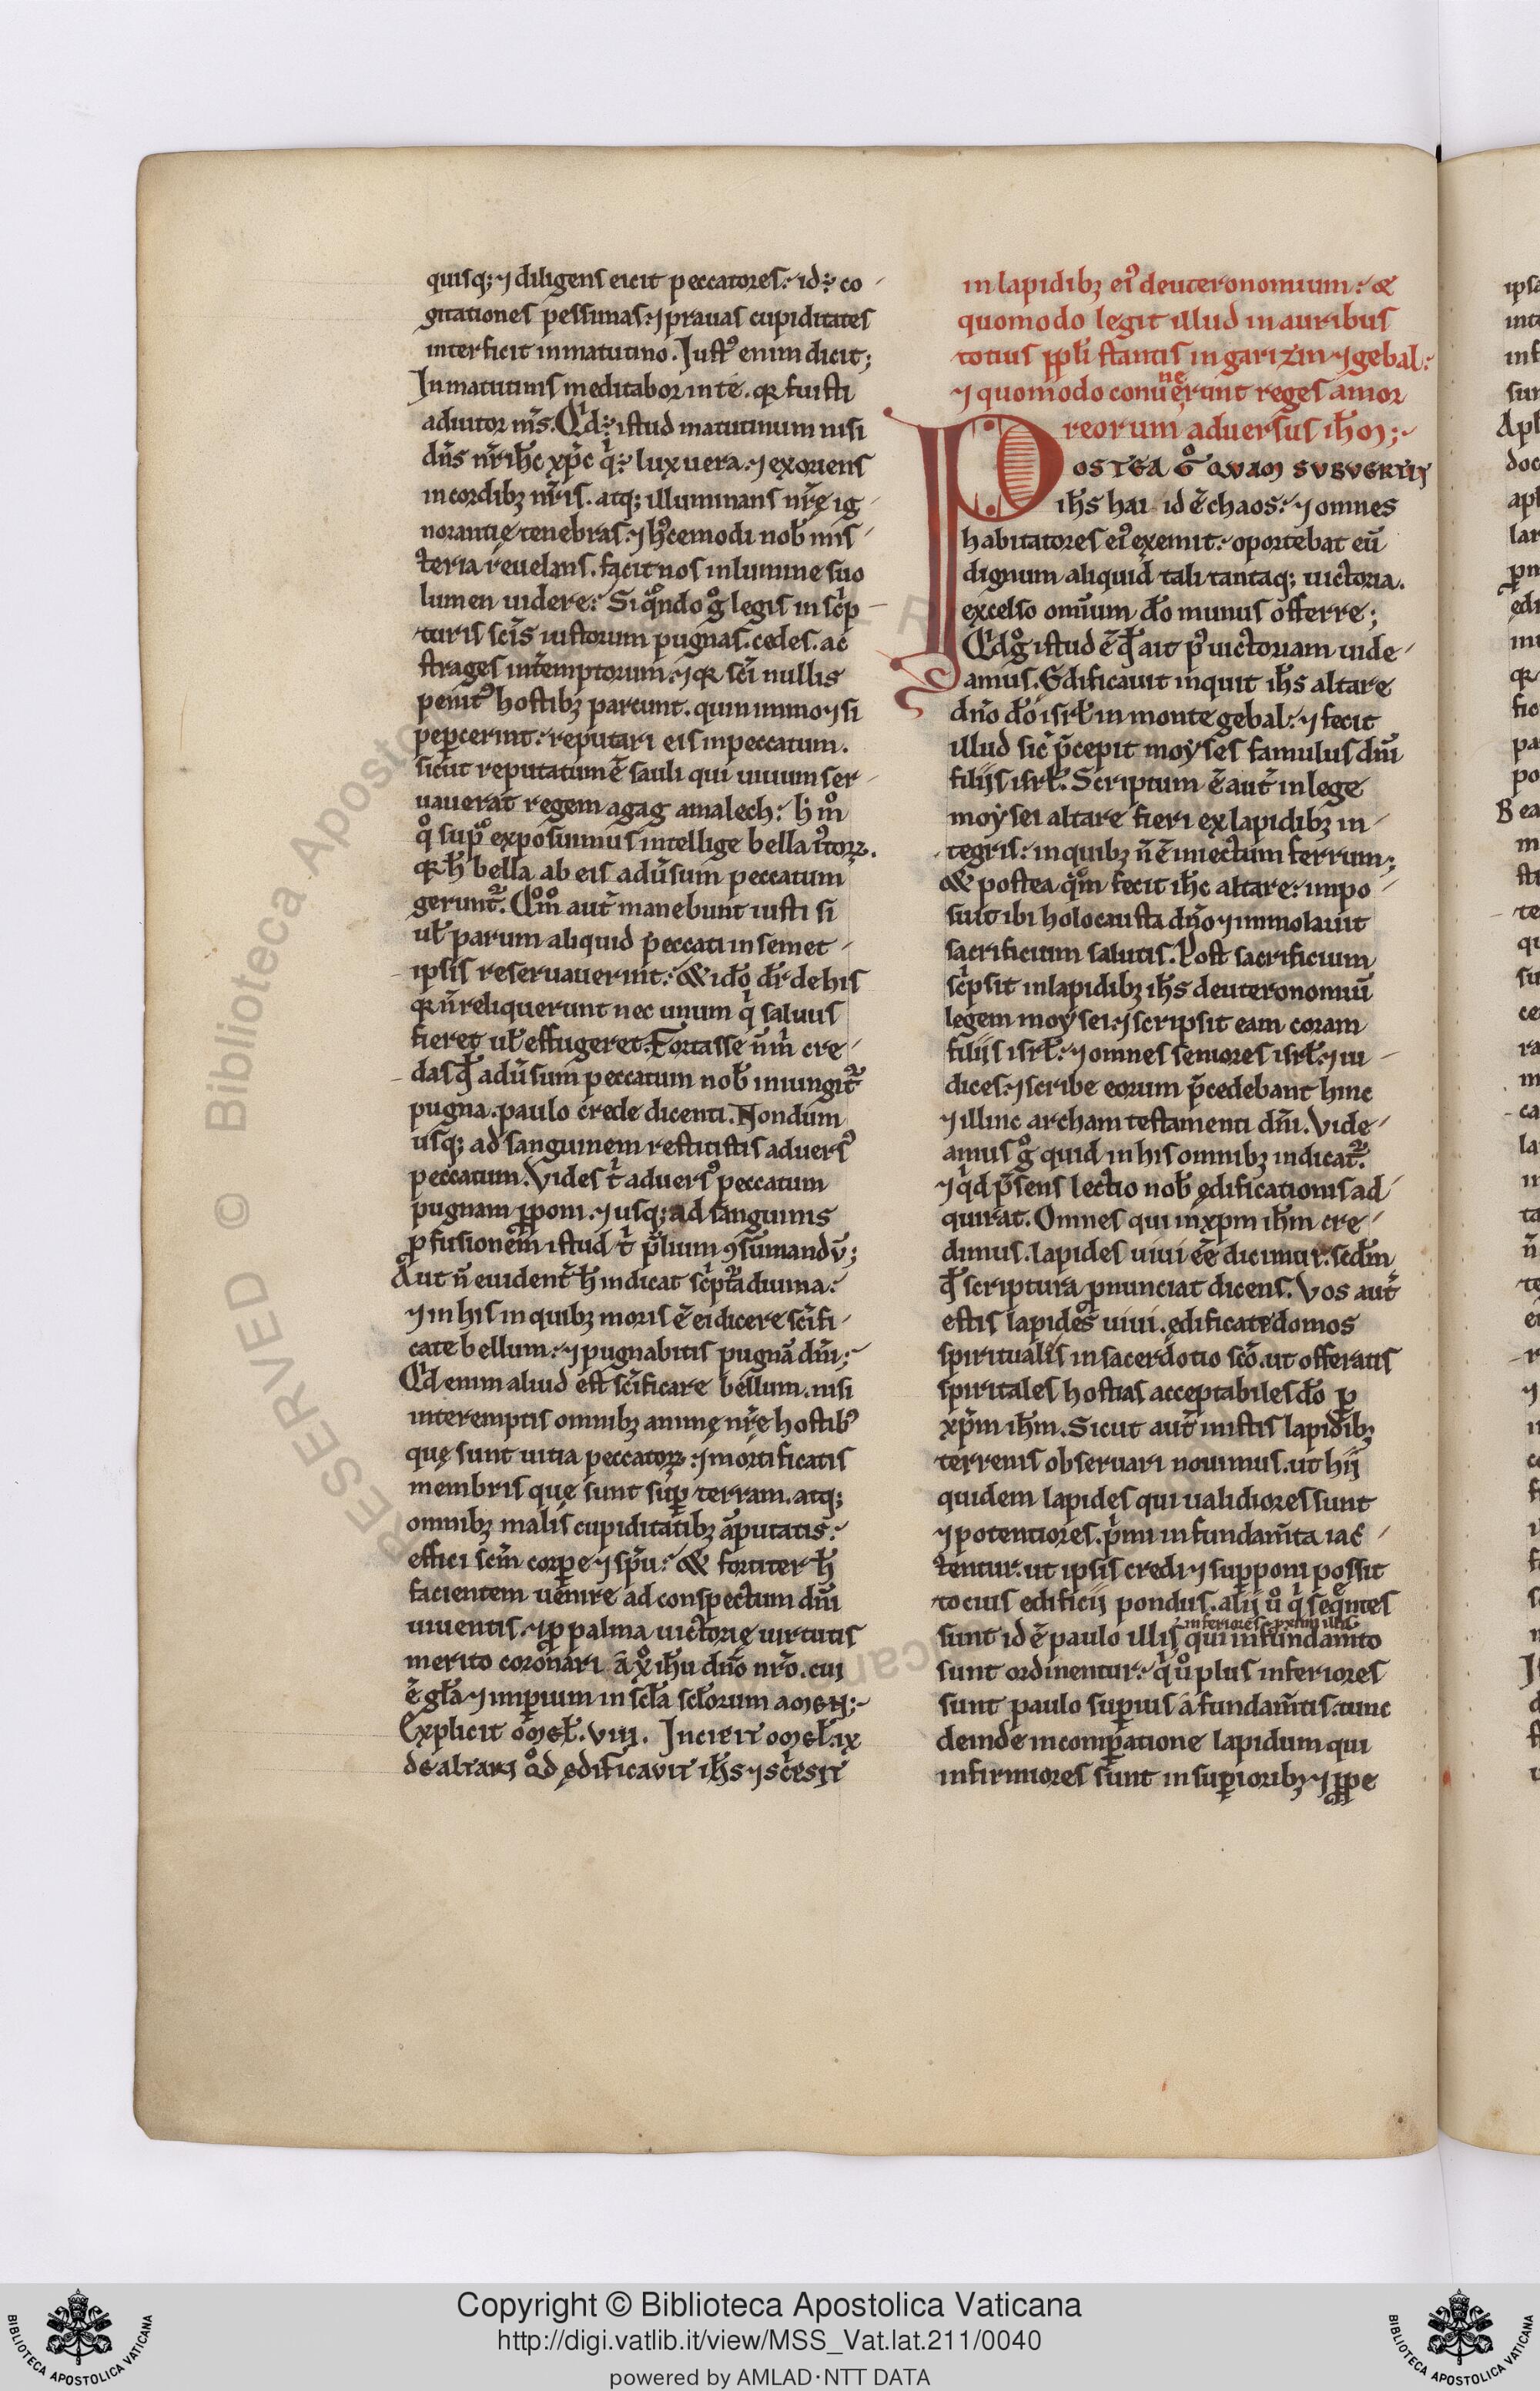 quisq; ⁊ diligens eicit peccatores. id ÷ co
gitationes pessimas. ⁊ prauas cupiditates
interficit in matutino. Iustꝰ enim dicit;
In matutinis meditabor in te. qꝛ fuisti
adiutor m̄s. Qͥd ÷ istud matutinum nisi
dn̄s nr̄ ih̄c xp̄c qͥ ÷ lux uera. ⁊ exoriens
in cordibꝫ nr̄is. atq; illuminans nr̄ę ig
norantię tenebras. ⁊ hꝰcemodi nob̄ mis
teria reuelans. facit nos in lumine suo
lumen uidere. Si qͦndo gͦ legis in scͥp
turis scīs iustorum pugnas. cedes. ac
strages intēmptorum. ⁊ qꝛ scī nullis
penitꝰ hostibꝫ parcunt. quin immo ⁊ si
peꝑcerint. reputari eis in peccatum.
sicut reputatum ē sauli qui uiuum ser
uauerat regem agag amalech. h̄ mͦ
qͦ sup̄ exposuimus intellige bella iꝰtoꝝ.
qꝛ h̄ bella ab eis adūsum peccatum
gerunt᷑. Qͦmͦ aut᷑ manebunt iusti si
ul̄ parum aliquid peccati in semet
ipsis reseruauerint. & id̄o dr̄ de his
qꝛ n̄ reliquerunt nec unum qͥ saluus
fieret ul̄ effugeret. Fortasse n̄ mͥ cre
das qd̄ adūsum peccatum nob̄ iniungit᷑
pugna. paulo crede dicenti. Nondum
usq; ad sanguinem restitistis aduersꝰ
peccatum. Vides tͥ aduersꝰ peccatum
pugnam ꝓponi. ⁊ usq; ad sanguinis
ꝓfusionem istud tͥ p̄lium ꝯsumandū;
Aut n̄ euident᷑ h̄ indicat scͥpt᷑a diuina.
⁊ in his in quibꝫ moris ē ei dicere scīfi
cate bellum. ⁊ pugnabitis pugnā dn̄i;
Qͥd enim aliud est scīficare bellum. nisi
interemptis omnibꝫ animę nr̄e hostibꝰ
quę sunt uitia peccatoꝝ. ⁊ mortificatis
membris que sunt suꝑ terram. atq;
omnibꝫ malis cupiditatibꝫ āputatis.
effici scm̄ corpore ⁊ sp̄u. & fortiter h̄
facientem uenire ad conspectum dn̄i
uiuentis. ⁊ ꝑ palma uictorię uirtutis
merito coronari ā xͦ ih̄u dn̄o nr̄o. cui
ē gl̄a ⁊ imꝑium in scl̄a scl̄orum amen;
Explicit omel̄. viii. Incipit omel̄. ix
de altari qͦd ędificavit ih̄s ⁊ scͥpsit
in lapidibꝫ eiꝰ deuteronomium. &
quomodo legit illud in auribus
totius ppl̄i stantis in garizin ⁊ gebal.
⁊ quomodo conueneꝛunt reges amor
reorum aduersus ih̄m;
Postea gͦ quam subvertit
ih̄s hai id ē chaos. ⁊ omnes
habitatores eiꝰ exemit. oportebat eū
dignum aliquid tali tantaq; uictoria.
excelso omīum d̄o munus offerre;
Qͥd gͦ istud ē qd̄ ait pꝰ uictoriam uide
amus. Edificauit inquit ih̄s altare
dn̄o d̄o isrl̄ in monte gebal. ⁊ fecit
illud sic̄ p̄cepit moyses famulus dn̄i
filiis isrl̄. Scriptum ē aut᷑ in lege
moysei altare fieri ex lapidibꝫ in
tegris. in quibꝫ n̄ ē iniectum ferrum;
& postea qͦm fecit ih̄c altare. impo
suit ibi holocausta dn̄o ⁊ immolauit
sacrificium salutis. Post sacrificium
scͥpsit in lapidibꝫ ih̄s deuteronomiū
legem moysei. ⁊ scripsit eam coram
filiis isrl̄. ⁊ omnes seniores isrl̄. ⁊ iu
dices. ⁊ scribe eorum p̄cedebant hinc
⁊ illinc archam testamenti dn̄i. Vide
amus gͦ quid in his omnibꝫ indicat᷑.
⁊ qͥd p̄sens lectio nob̄ ędificationis ad
quirat. Omnes qui in xp̄m ih̄m cre
dimus. lapides uiui ēē dicimur. scd̄m
qd̄ scriptura ꝓnunciat dicens. Vos aut᷑
estis lapides uiui. ędificate domos
spiritualis in sacerdotio scō. ut offeratis
spiritales hostias acceptabiles d̄o ꝑ
xp̄m ih̄m. Sicut aut᷑ in istis lapidibꝫ
terrenis obseruari nouimus. ut hii
quidem lapides qui ualidiores sunt
⁊ potentiores. pͥmi in fundam̄ta iac
tentur. ut ipsis credi ⁊ supponi possit
tocius edificii pondus. alii uͦ qͥ seqͤntes
sunt id ē paulo illis qui in fundam̄to
sunt ordinentur. qͥ uͦ plus inferiores
sunt paulo suꝑius a fundam̄tis. tunc
deinde in comꝑatione lapidum qui
infirmiores sunt in suꝑioribꝫ ⁊ ꝓpe
Copyright © Biblioteca Apostolica Vaticana
http://digi.vatlib.it/view/MSS_Vat.lat.211/0040
powered by AMLAD·NTT DATA